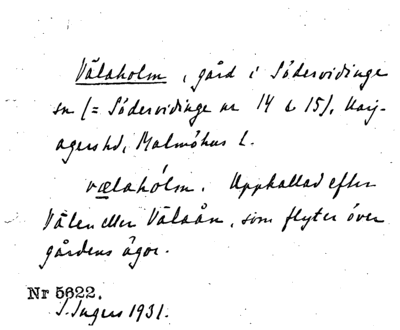 Välaholm, gård i Södervidinge
sn (= Södervidinge nr 14 & 15), Harj-
agers hd, Malmöhus l.
vælahólm. Uppkallad efter
Välen eller Välaån, som flyter över
gårdens ägor.
Nr 5622.
S. Ingers 1931.